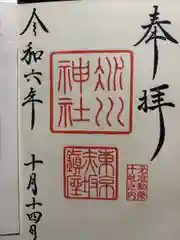 奉拝
氷川神社
東京赤坂鎮座
令和六年
十月十四日